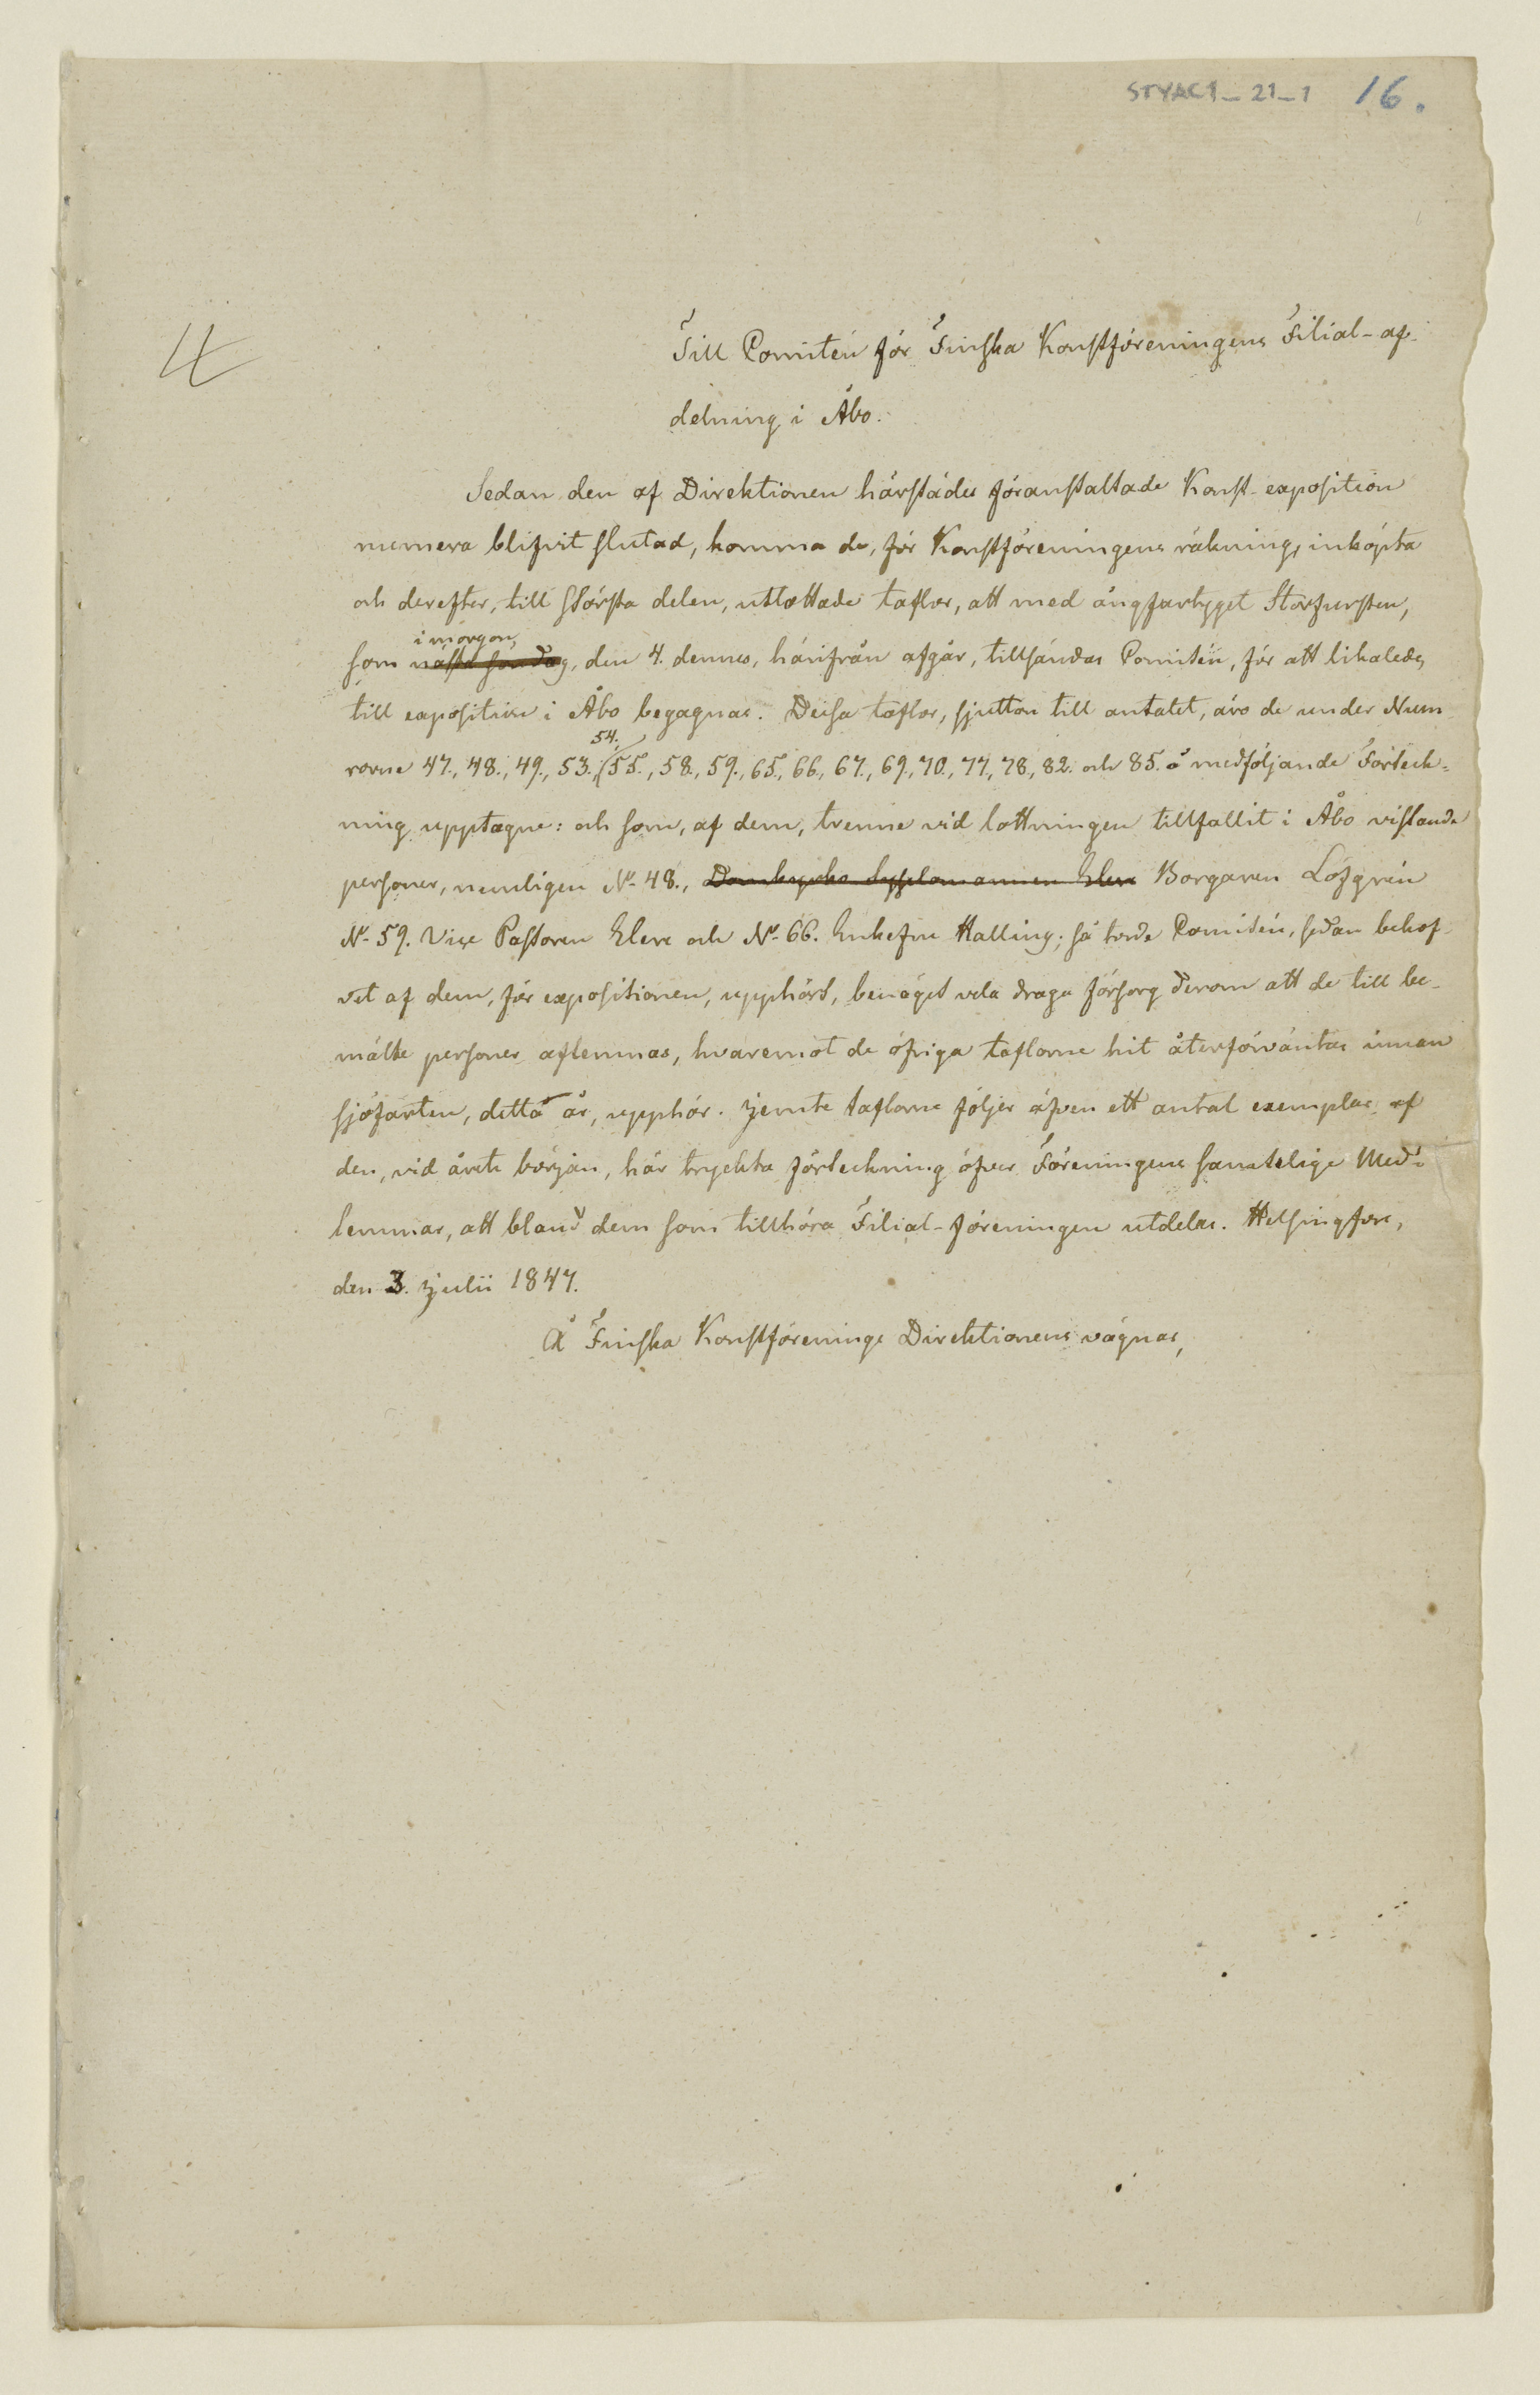 STYAC1_21_1 16.
4
Till Comitén för Finska Konstföreningens Filial-af-
delning i Åbo.
Sedan den af Direktionen härstädes föranstaltade Konst-exposition
numera blifvit slutad, komma de, för Konstföreningens räkning, inköpta
och derefter, till största delen, utlottade taflor, att med ångfartyget Storfursten,
i morgon,
som nästa söndag, den 4. dennes, härifrån afgår, tillsändas Comitén, för att likaledes
till exposition i Åbo begagnas. Dessa taflor, sjutton till antalet, äro de under Num
54.
rorne 47., 48., 49., 53., 55., 58., 59., 65., 66., 67., 69., 70., 77., 78., 82. och 85. å medföljande Förteck-
ning upptagne: och som, af dem, trenne vid lottningen tillfallit i Åbo vistande
personer, nemligen No 48., Domkyrko Sysslomannen Elere Borgaren Löfgrén
No 59. Vice Pastoren Elere och No 66. Enkefru Halling; så torde Comitén, sedan behof-
vet af dem, för expositionen, upphört, benäget vela draga försorg derom att de till be-
mälte personer aflemnas, hvaremot de öfriga taflorne hit återförväntas innan
sjöfarten, detta år, upphör. Jemte taflorne följer äfven ett antal exemplar af
den, vid årets början, här tryckta förteckning öfver Föreningens samtelige Med-
lemmar, att bland dem som tillhöra Filial-föreningen utdelas. Helsingfors,
den 3. Julii 1847.
Å Finska Konstförenings Direktionens vägnar,